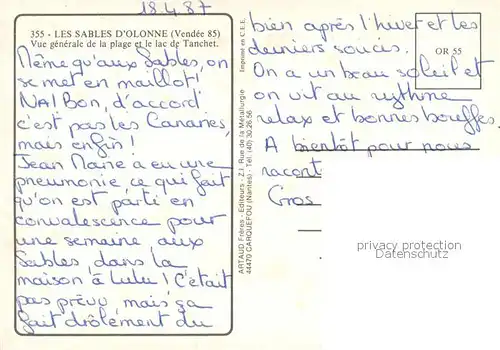 18.4.87
355 - LES SABLES D'OLONNE (Vendée 85)
Vue générale de la plage et le lac de Tanchet.
Même qu'aux Sables, on
se met en maillot!
NA! Bon, d'accord
c'est pas les Canaries,
mais enfin!
Jean Marie a eu une
pneumonie ce qui fait
qu'on est parti en
convalescence pour
une semaine aux
Sables dans la
maison à Lulu! C'était
pas prévu mais ça
fait drôlement du
ARTAUD Frères - Editeurs - Z.I. Rue de la Métallurgie
44470 CARQUEFOU (Nantes) - Tél. (40) 30.26.56
Imprimé en C.E.E.
bien après l'hiver et les
derniers soucis.
On a un beau soleil et
on vit au rythme
relax et bonnes bouffes.
A bientôt pour nous
racont
Gros
OR 55
privacy protection
Datenschutz